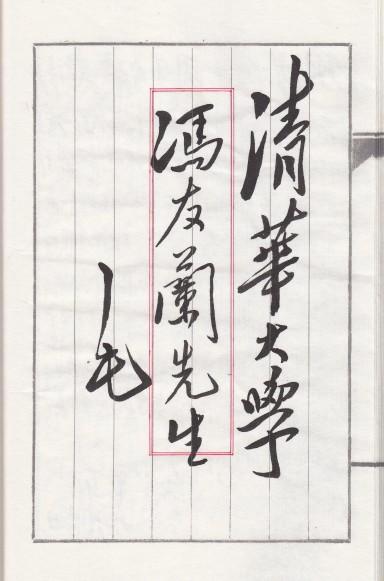 清華大學
馮友蘭先生
毛